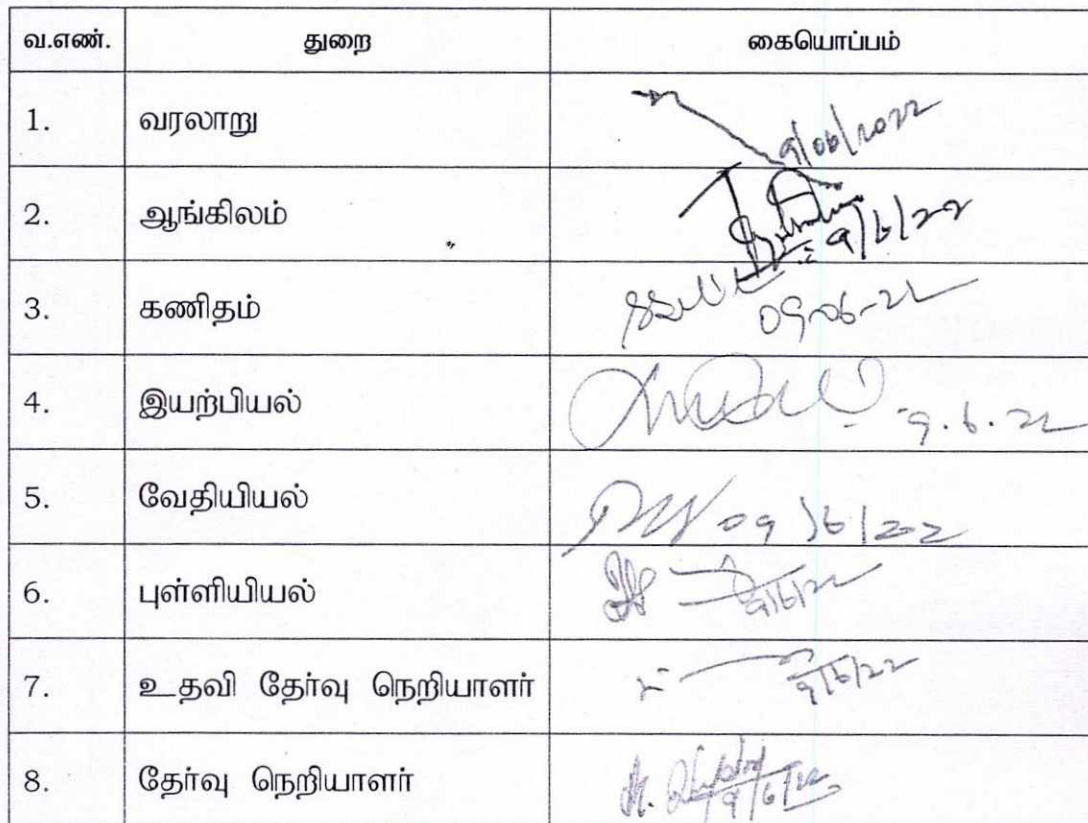 வ.எண். துறை கையொப்பம்
1. வரலாறு 9/06/2022
2. ஆங்கிலம் 9/6/22
3. கணிதம் 09-06-22
4. இயற்பியல் 9.6.22
5. வேதியியல் 09/6/22
6. புள்ளியியல் 9/6/22
7. உதவி தேர்வு நெறியாளர் 9/6/22
8. தேர்வு நெறியாளர் 9/6/22